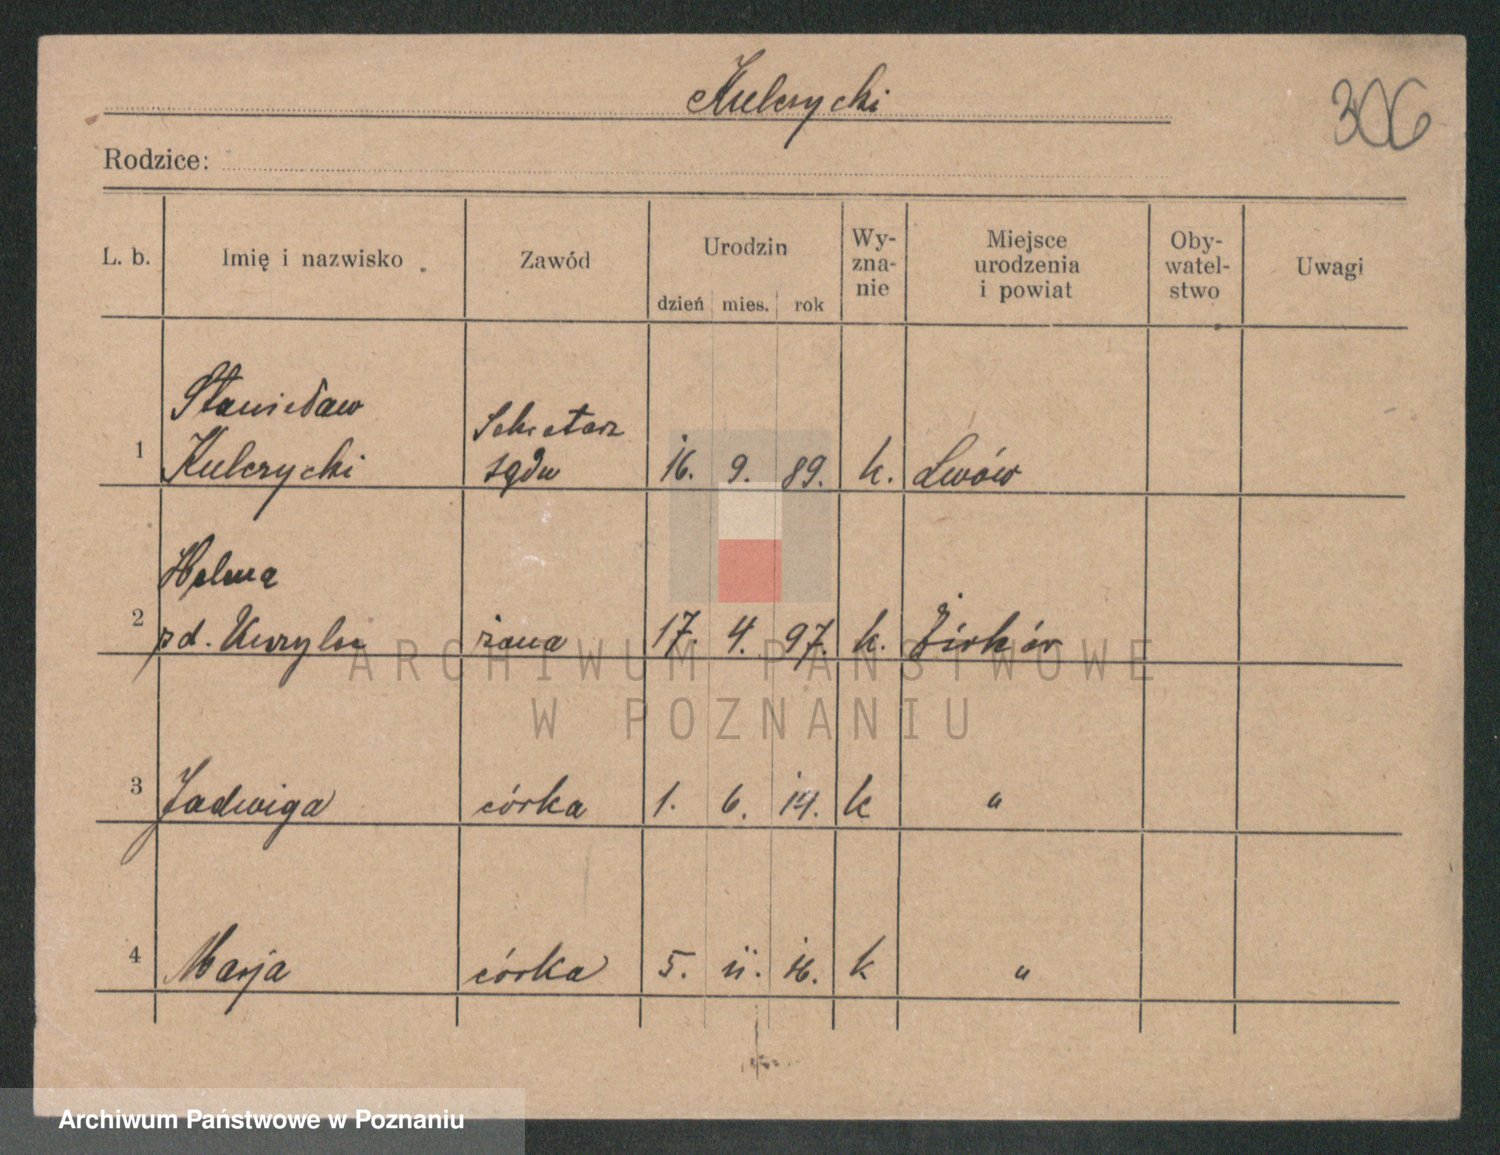 Kulczycki
306
Rodzice:
L. b. Imię i nazwisko Zawód Urodzin dzień mies. rok Wy-zna-nie Miejsce urodzenia i powiat Oby-watel-stwo Uwagi
Stanisław Sekretarz
1 Kulczycki sądu 16. 9. 89. k. Lwów
Helena
2 zd. żona 17. 4. 97. k.
3 Jadwiga córka 1. 6. 14. k "
4 Marja córka 5. 11. 16. k "
ARCHIWUM PAŃSTWOWE
W POZNANIU
Archiwum Państwowe w Poznaniu